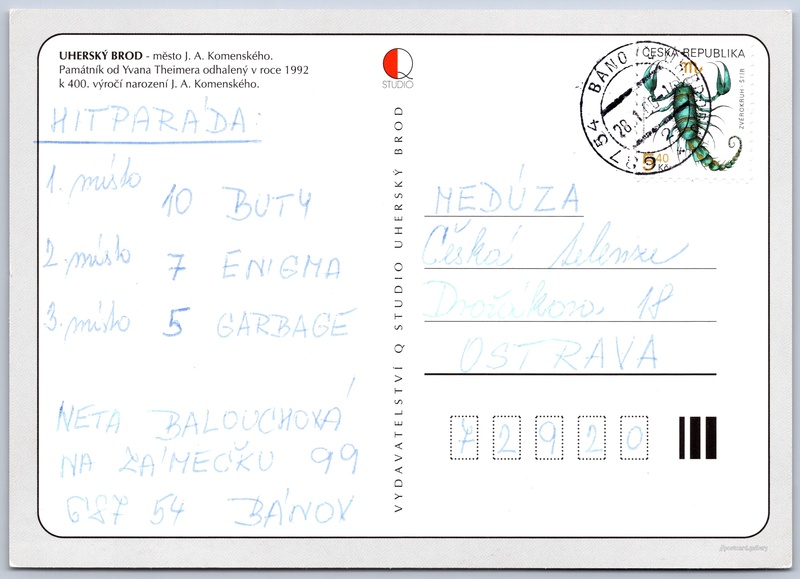 UHERSKÝ BROD - město J. A. Komenského.
Památník od Yvana Theimera odhalený v roce 1992
k 400. výročí narození J. A. Komenského.
Q
STUDIO
ČESKÁ REPUBLIKA
ZVĚROKRUH - ŠTÍR
5.40
Kč
687 54 BÁNOV
28.1.
HITPARÁDA:
1. místo 10 BUTY
2. místo 7 ENIGMA
3. místo 5 GARBAGE
NETA BALOUCHOVÁ
NA ZÁMEČKU 99
687 54 BÁNOV
VYDAVATELSTVÍ Q STUDIO UHERSKÝ BROD
MEDÚZA
Česká televize
Dvořákova 18
OSTRAVA
72920